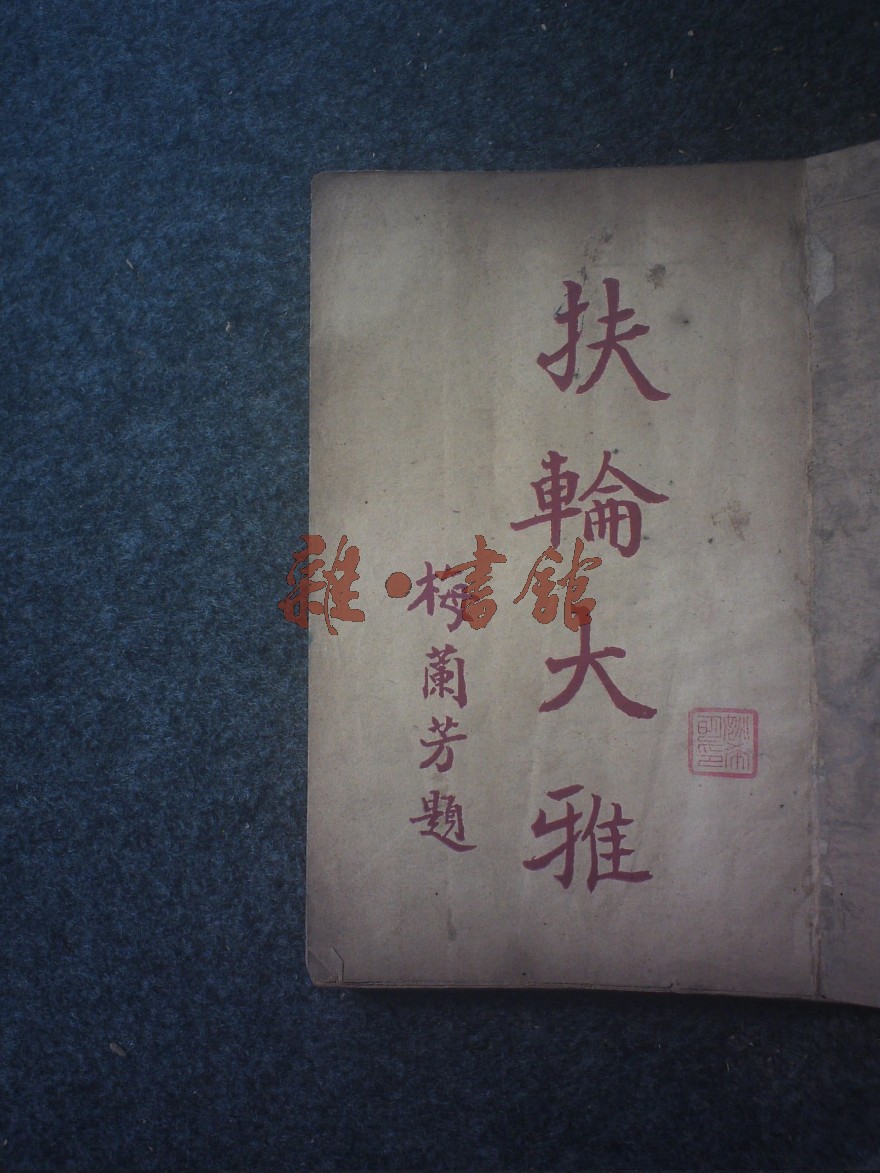 扶輪大雅
梅蘭芳題
雜·書舘